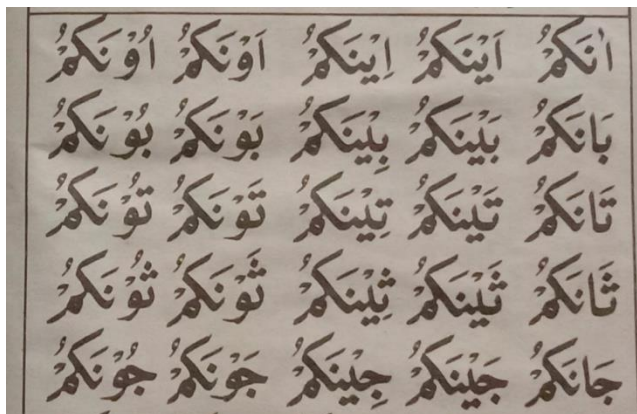 اٰنَكُمْ اَيْنَكُمْ اِيْنَكُمْ اَوْنَكُمْ اُوْنَكُمْ
بَانَكُمْ بَيْنَكُمْ بِيْنَكُمْ بَوْنَكُمْ بُوْنَكُمْ
تَانَكُمْ تَيْنَكُمْ تِيْنَكُمْ تَوْنَكُمْ تُوْنَكُمْ
ثَانَكُمْ ثَيْنَكُمْ ثِيْنَكُمْ ثَوْنَكُمْ ثُوْنَكُمْ
جَانَكُمْ جَيْنَكُمْ جِيْنَكُمْ جَوْنَكُمْ جُوْنَكُمْ